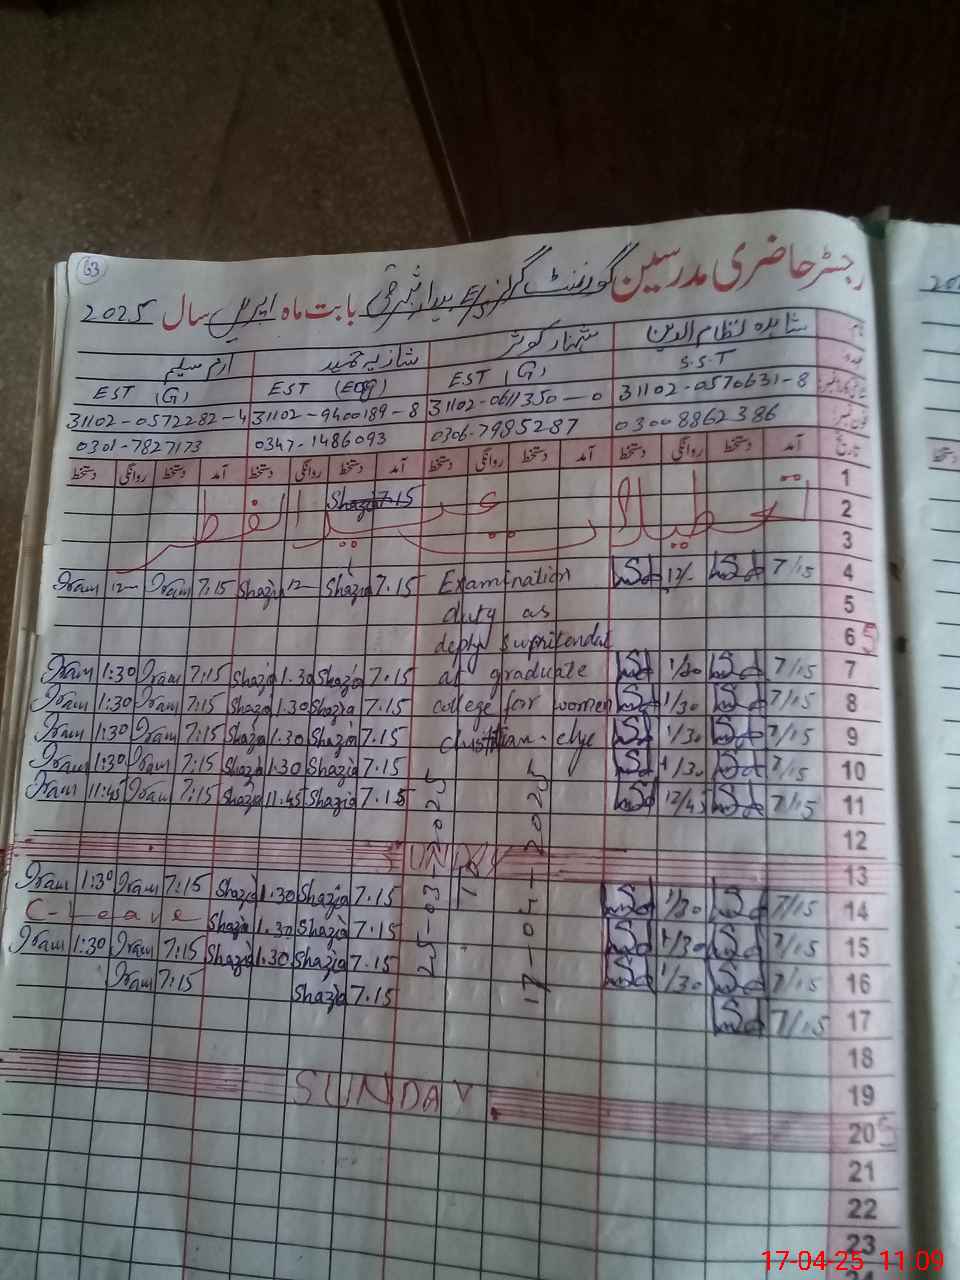 63
رجسٹر حاضری مدرسین گورنمنٹ گرلز بابت ماہ اپریل سال 2025
نام شاہدہ نظام الدین شہناز کوثر شازیہ حمید ارم سلیم
عہدہ S.S.T EST (G) EST (Eng) EST (G)
31102-0570631-8 31102-0611350-0 31102-9400189-8 31102-0572282-4
03008862386 0306-7985287 0347-1486093 0301-7827173
تاریخ آمد دستخط روانگی دستخط آمد دستخط روانگی دستخط آمد دستخط روانگی دستخط آمد دستخط روانگی دستخط
1
2 Shazia 7.15
تعطیلات عید الفطر
3
Iram 12 Iram 7.15 Shazia 12 Shazia 7.15 Examination 12/- 7/15 4
duty as 5
6 S
Iram 1:30 Iram 7:15 Shazia 1.30 Shazia 7.15 at graduate 1/30 7/15 7
Iram 1:30 Iram 7:15 Shazia 1.30 Shazia 7.15 college for women 1/30 7/15 8
Iram 1:30 Iram 7:15 Shazia 1.30 Shazia 7.15 1/30 7/15 9
Iram 1:30 Iram 7:15 Shazia 1.30 Shazia 7.15 1/30 7/15 10
Iram 11:45 Iram 7:15 Shazia 11.45 Shazia 7.15 12/45 7/15 11
12
SUNDAY 13
Iram 1:30 Iram 7:15 Shazia 1.30 Shazia 7.15 1/30 7/15 14
C-Leave Shazia 1.30 Shazia 7.15 1/30 7/15 15
Iram 1:30 Iram 7:15 Shazia 1.30 Shazia 7.15 1/30 7/15 16
Iram 7:15 Shazia 7.15 7/15 17
25-03-2025 To 17-04-2025
18
19
SUNDAY 20 S
21
22
23
17-04-25 11:09